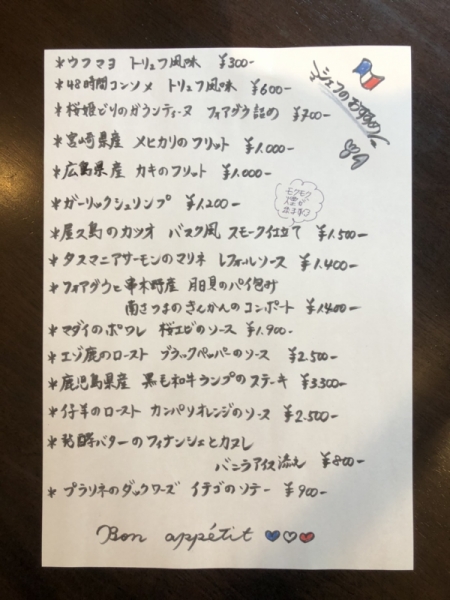 シェフのおすすめ
*ウフマヨ トリュフ風味 ¥300-
*48時間コンソメ トリュフ風味 ¥600-
*桜姫どりのガランティーヌ フォアグラ詰め ¥700-
*宮崎県産 メヒカリのフリット ¥1.000-
*広島県産 カキのフリット ¥1.000-
*ガーリックシュリンプ ¥1.200-
モクモク
煙が
出ます
*屋久島のカツオ バスク風 スモーク仕立て ¥1.500-
*タスマニアサーモンのマリネ レフォールソース ¥1.400-
*フォアグラと串木野産 月日貝のパイ包み
南さつまのきんかんのコンポート ¥1400-
*マダイのポワレ 桜エビのソース ¥1.900-
*エゾ鹿のロースト ブラックペッパーのソース ¥2.500-
*鹿児島県産 黒毛和牛ランプのステーキ ¥3.300-
*仔羊のロースト カンパリオレンジのソース ¥2.500-
*発酵バターのフィナンシェとカヌレ
バニラアイス添え ¥800-
*プラリネのダックワーズ イチゴのソテー ¥900-
Bon appétit